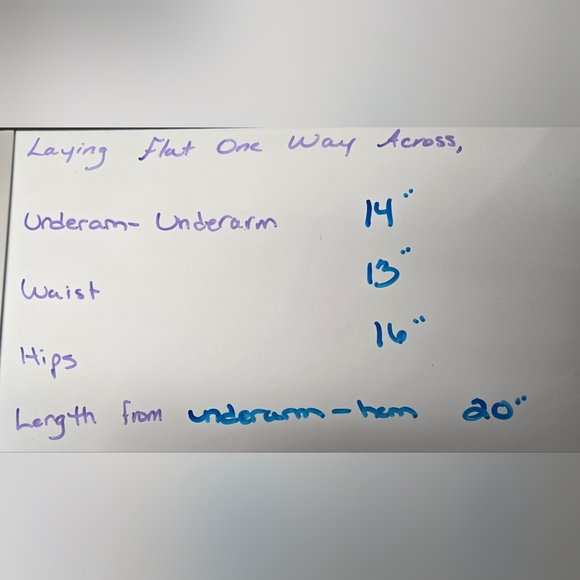 Laying flat One Way Across,
Underam- Underarm 14"
Waist 13"
Hips 16"
Length from underarm - hem 20"